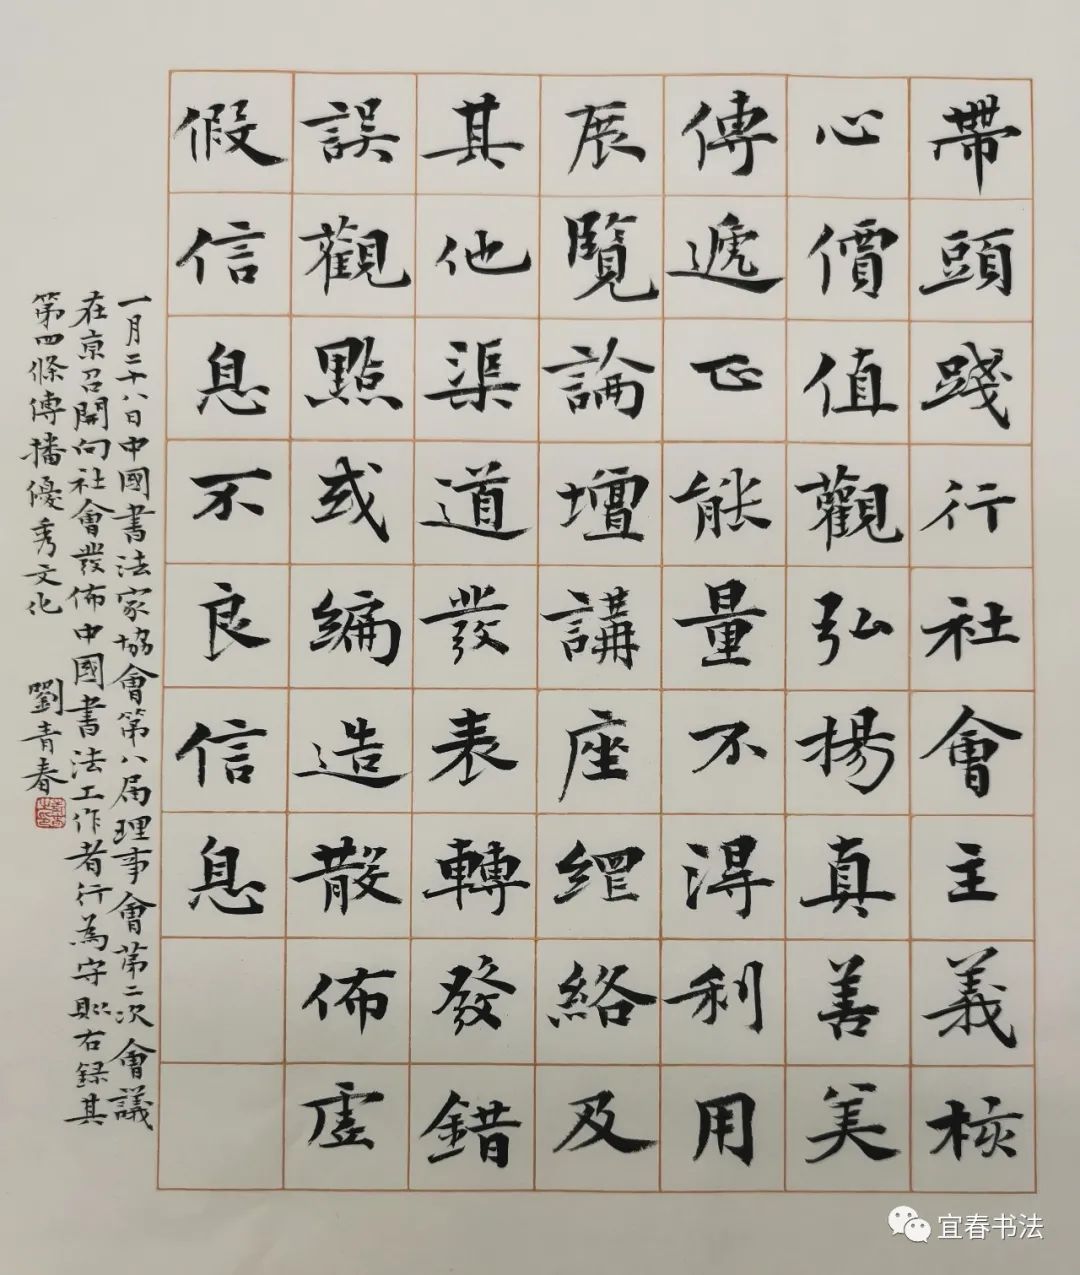 帶頭踐行社會主義核
心價值觀弘揚真善美
傳遞正能量不得利用
展覽論壇講座網絡及
其他渠道發表轉發錯
誤觀點或編造散佈虛
假信息不良信息
一月二十八日中國書法家協會第八屆理事會第二次會議
在京召開向社會發佈中國書法工作者行為守則右錄其
第四條傳播優秀文化 劉青春
宜春书法